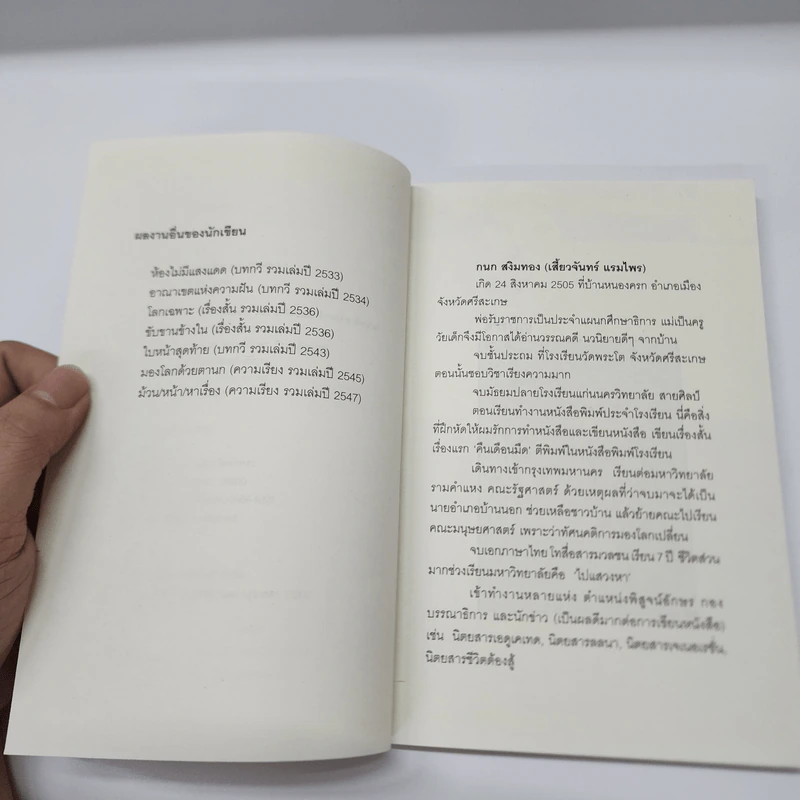 ผลงานอื่นของนักเขียน
ห้องไม่มีแสงแดด (บทกวี รวมเล่มปี 2533)
อาณาเขตแห่งความฝัน (บทกวี รวมเล่มปี 2534)
โลกเฉพาะ (เรื่องสั้น รวมเล่มปี 2536)
ขับขานข้างใน (เรื่องสั้น รวมเล่มปี 2536)
ใบหน้าสุดท้าย (บทกวี รวมเล่มปี 2543)
มองโลกด้วยตานก (ความเรียง รวมเล่มปี 2545)
ม้วน/หน้า/หาเรื่อง (ความเรียง รวมเล่มปี 2547)
กนก สงิมทอง (เสี้ยวจันทร์ แรมไพร)
เกิด 24 สิงหาคม 2505 ที่บ้านหนองครก อำเภอเมือง
จังหวัดศรีสะเกษ
พ่อรับราชการเป็นประจำแผนกศึกษาธิการ แม่เป็นครู
วัยเด็กจึงมีโอกาสได้อ่านวรรณคดี นวนิยายดีๆ จากบ้าน
จบชั้นประถม ที่โรงเรียนวัดพระโต จังหวัดศรีสะเกษ
ตอนนั้นชอบวิชาเรียงความมาก
จบมัธยมปลายโรงเรียนแก่นนครวิทยาลัย สายศิลป์
ตอนเรียนทำงานหนังสือพิมพ์ประจำโรงเรียน นี่คือสิ่ง
ที่ฝึกหัดให้ผมรักการทำหนังสือและเขียนหนังสือ เขียนเรื่องสั้น
เรื่องแรก 'คืนเดือนมืด' ตีพิมพ์ในหนังสือพิมพ์โรงเรียน
เดินทางเข้ากรุงเทพมหานคร เรียนต่อมหาวิทยาลัย
รามคำแหง คณะรัฐศาสตร์ ด้วยเหตุผลที่ว่าจบมาจะได้เป็น
นายอำเภอบ้านนอก ช่วยเหลือชาวบ้าน แล้วย้ายคณะไปเรียน
คณะมนุษยศาสตร์ เพราะว่าทัศนคติการมองโลกเปลี่ยน
จบเอกภาษาไทย โทสื่อสารมวลชน เรียน 7 ปี ชีวิตส่วน
มากช่วงเรียนมหาวิทยาลัยคือ 'ไปแสวงหา'
เข้าทำงานหลายแห่ง ตำแหน่งพิสูจน์อักษร กอง
บรรณาธิการ และนักข่าว (เป็นผลดีมากต่อการเขียนหนังสือ)
เช่น นิตยสารเอดูเคเทด, นิตยสารลลนา, นิตยสารเจเนอเรชั่น,
นิตยสารชีวิตต้องสู้